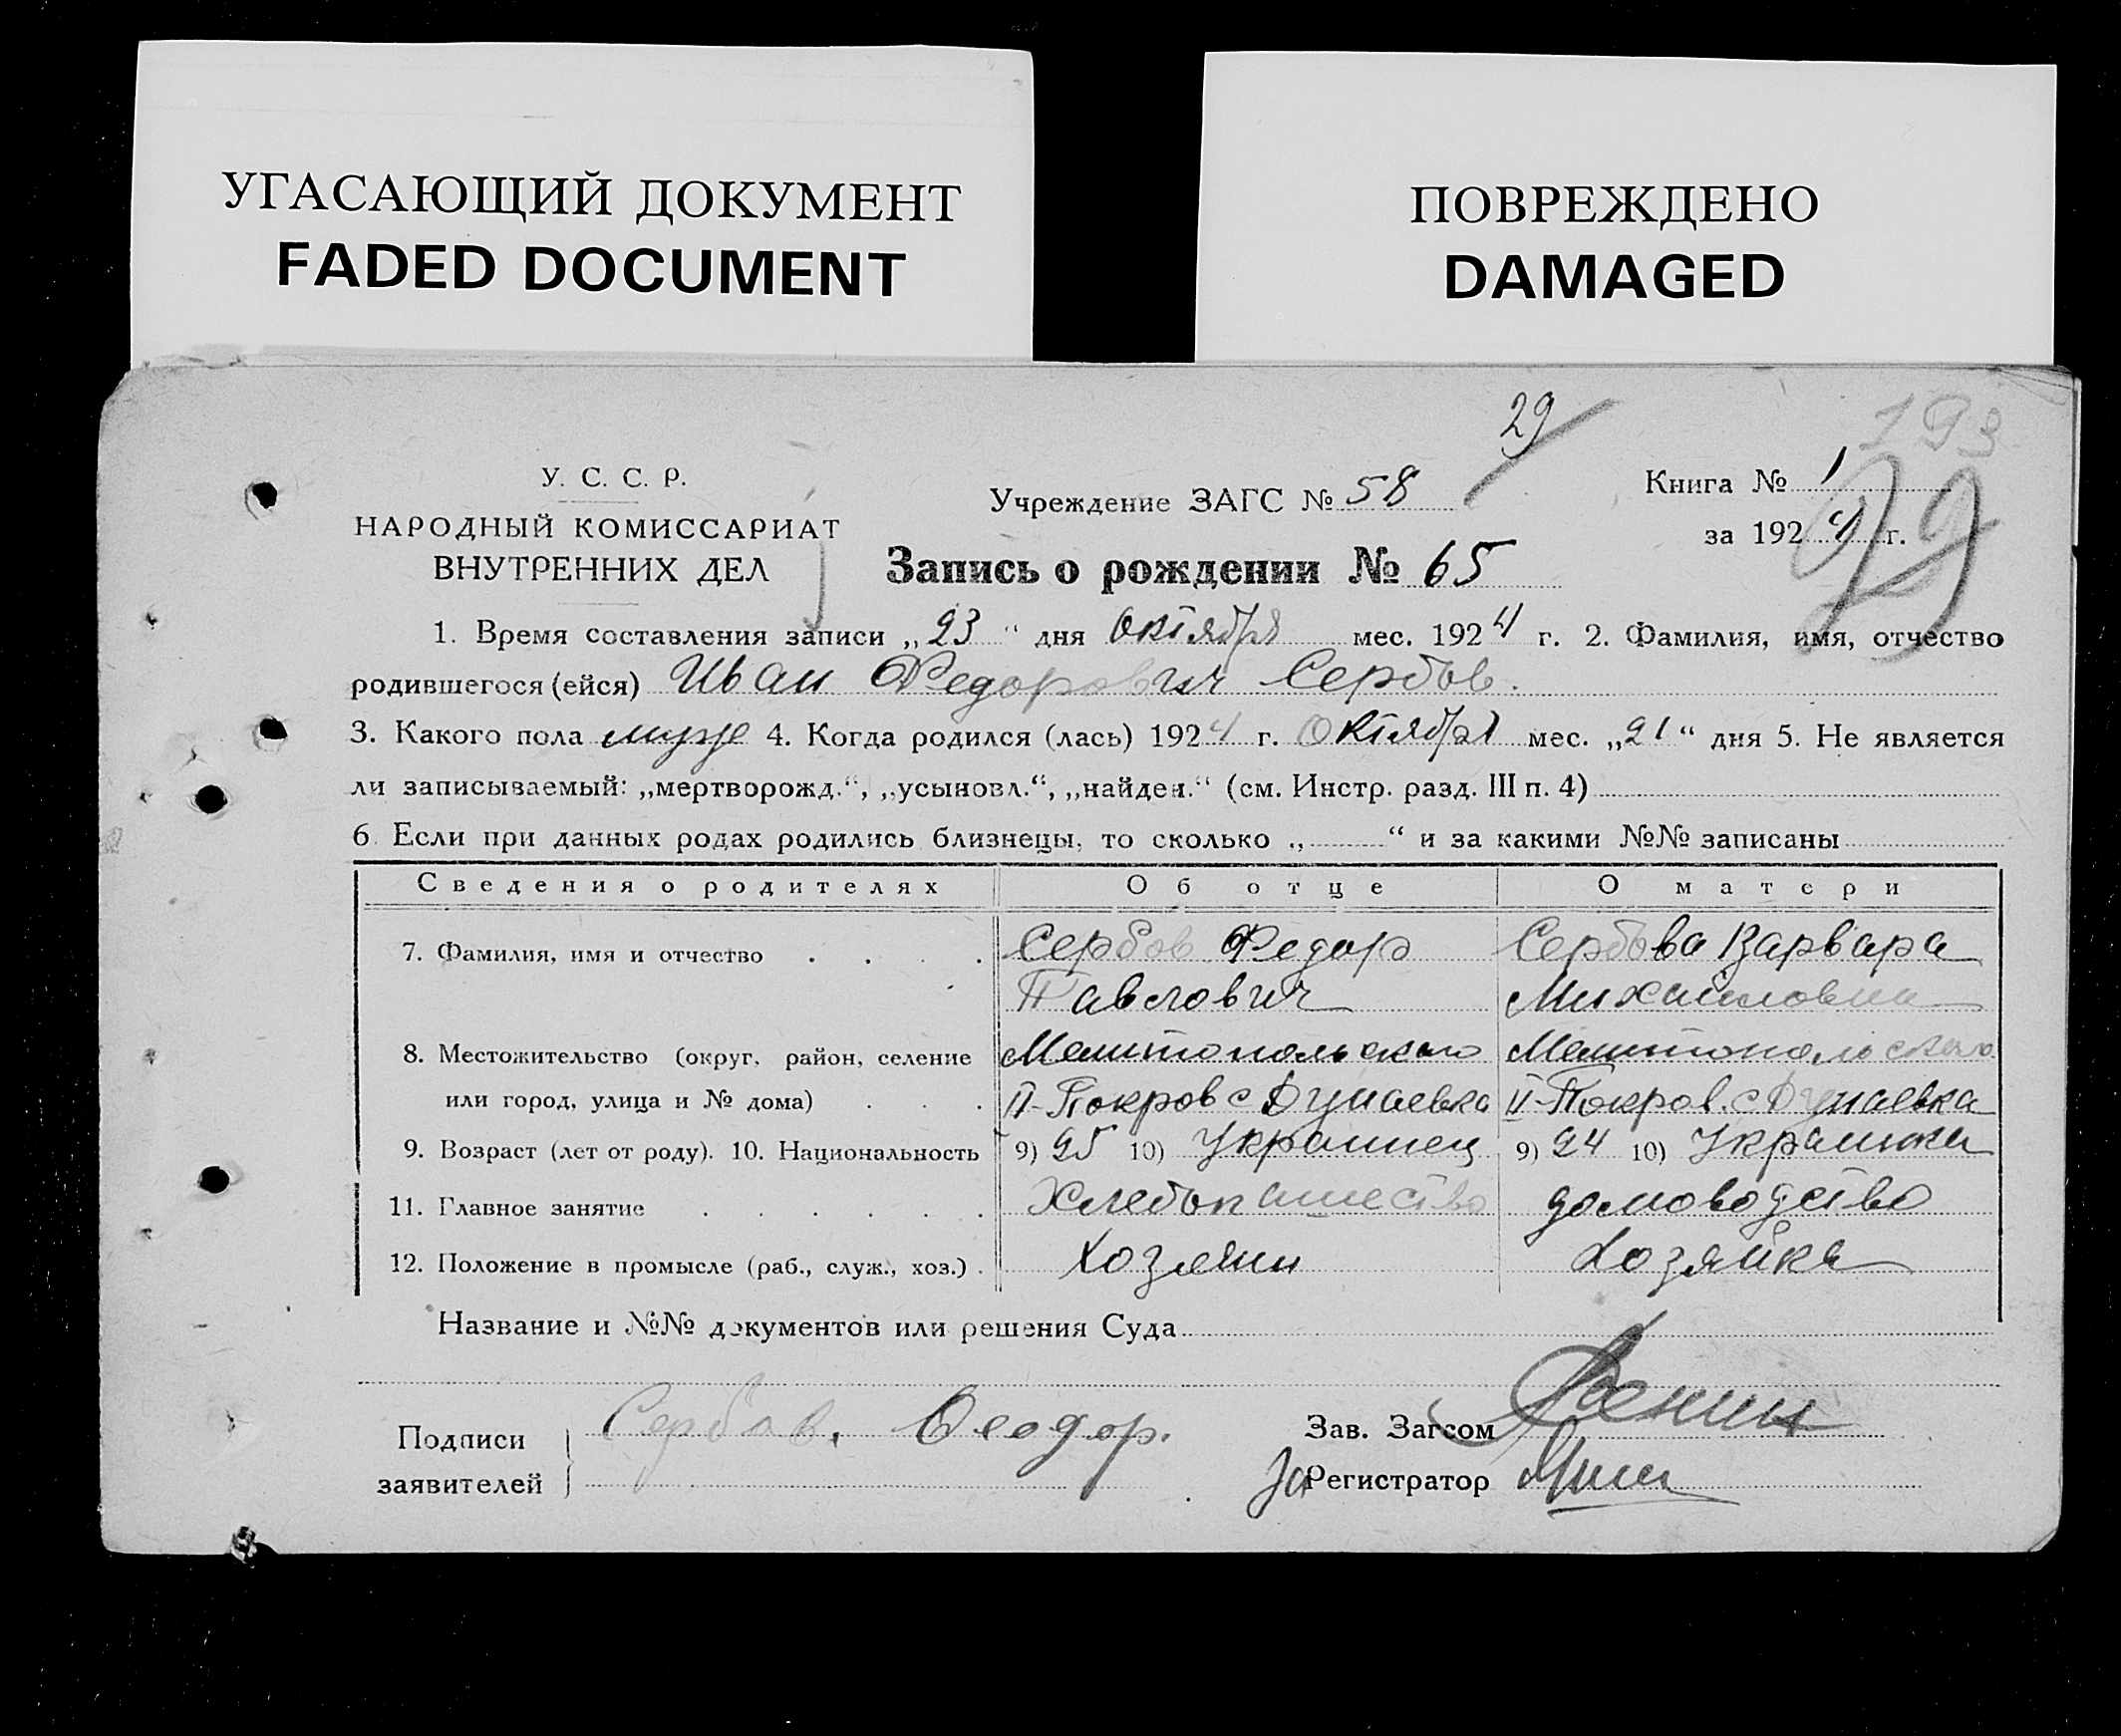 УГАСАЮЩИЙ ДОКУМЕНТ
FADED DOCUMENT
ПОВРЕЖДЕНО
DAMAGED
29
193
У. С. С. Р.
НАРОДНЫЙ КОМИССАРИАТ
ВНУТРЕННИХ ДЕЛ
Учреждение ЗАГС № 58
Книга № 1
за 1924 г.
Запись о рождении № 65
1. Время составления записи „23“ дня Октября мес. 1924 г. 2. Фамилия, имя, отчество
родившегося (ейся) Иван Федорович Сербов.
3. Какого пола муж 4. Когда родился (лась) 1924 г. Октября мес. „21“ дня 5. Не является
ли записываемый: „мертворожд.“, „усыновл.“, „найден.“ (см. Инстр. разд. III п. 4)
6. Если при данных родах родились близнецы, то сколько „ “ и за какими №№ записаны
Сведения о родителях Об отце О матери
7. Фамилия, имя и отчество Сербов Федор Сербова Варвара
Павлович Михайловна
8. Местожительство (округ, район, селение Мелитопольского Мелитопольского
или город, улица и № дома) II-Покров с Дунаевка II-Покров. с Дунаевка
9. Возраст (лет от роду). 10. Национальность 9) 25 10) Украинец 9) 24 10) Украинка
11. Главное занятие Хлебопашество домоводство
12. Положение в промысле (раб., служ., хоз.) Хозяин Хозяйка
Название и №№ документов или решения Суда
Подписи Сербов, Феодор. Зав. Загсом
заявителей За Регистратор